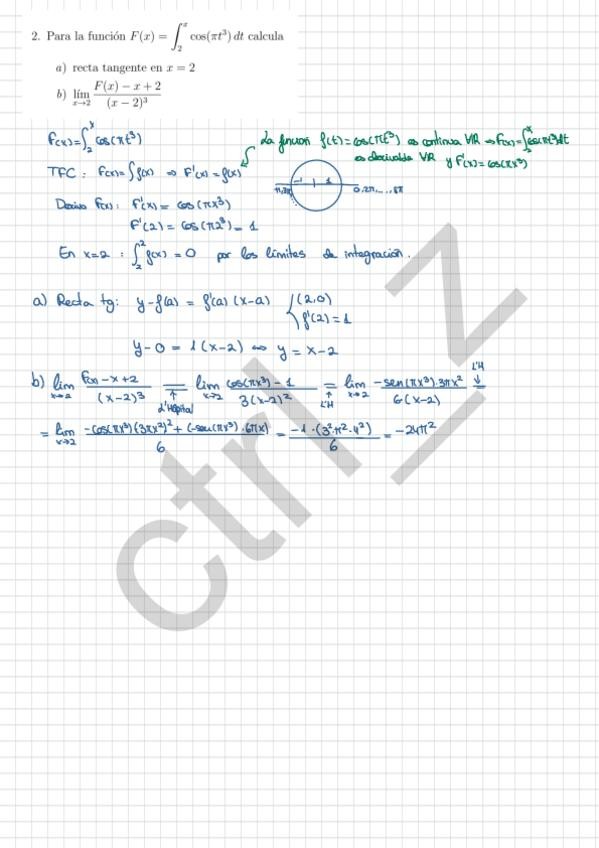 2. Para la función F(x) = ∫₂ˣ cos(πt³) dt calcula
a) recta tangente en x = 2
b) lím_{x→2} (F(x) − x + 2)/(x − 2)³
F(x)=∫₂ˣ cos(πt³)
La función f(t)=cos(πt³) es continua ∀ℝ ⇒ F(x)=∫₂ˣ cos(πt³)dt
es derivable ∀ℝ y F'(x)=cos(πx³)
TFC : F(x)=∫f(x) ⇒ F'(x)=f(x)
-1 1
0,2π,...,8π
Derivo F(x): F'(x) = cos(πx³)
F'(2) = cos(π2³) = 1
En x=2 : ∫₂² f(x) = 0 por los límites de integración.
a) Recta tg: y-f(a) = f'(a)(x-a) { (2,0)
f'(2)=1
y-0 = 1(x-2) ⇔ y = x-2
b) lim_{x→2} (F(x)-x+2)/(x-2)³ = lim_{x→2} (cos(πx³)-1)/(3(x-2)²) = lim_{x→2} (-sen(πx³)·3πx²)/(6(x-2)) =
d'Hôpital L'H L'H
= lim_{x→2} (-cos(πx³)(3πx²)²+(-sen(πx³)·6πx))/6 = (-1·(3²·π²·4²))/6 = -24π²
ctrl_z